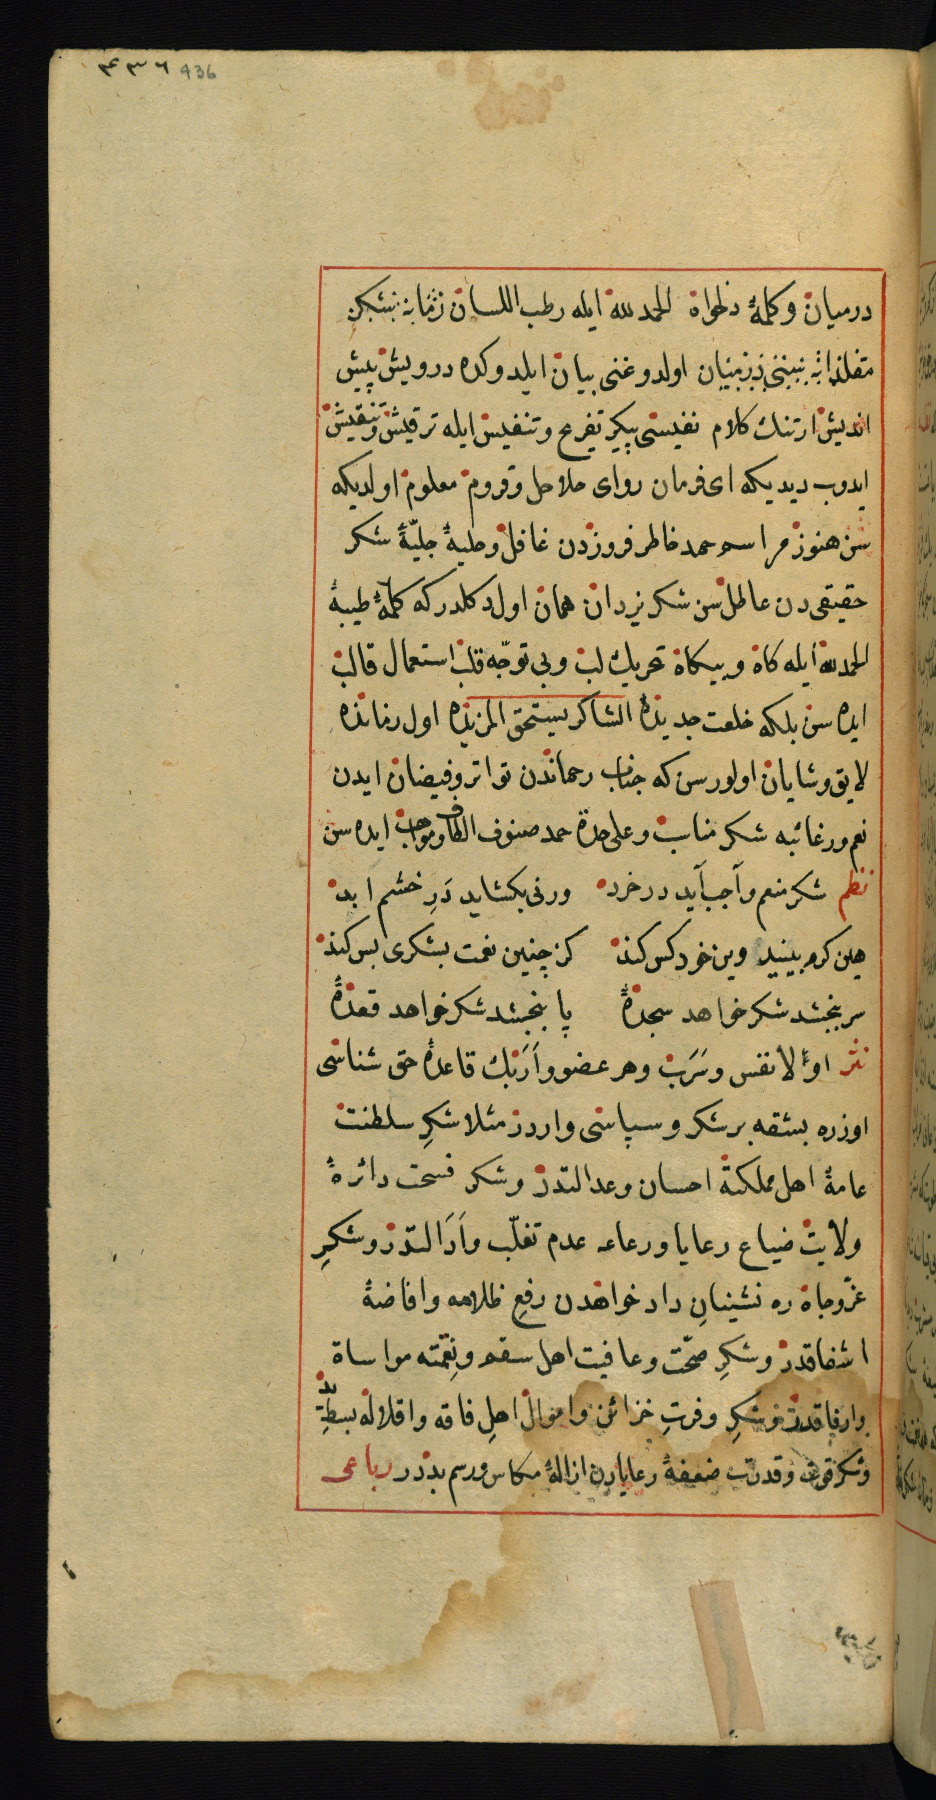 ۴۳٦ 436
درمیان و کلمهٔ دلخواه الحمد لله ایله رطب اللسان
اولدوغنی بیان ایلدوکده درویش پیش
اندیش ارتنك کلام نفیسی پیکر تفریح و تنفیس ایله ترقیش و تنقیش
ایدوب دیدیکه ای فرمان روای حلاحل و قروم معلوم اولدیکه
سن هنوز مراسم حمد خاطر فروزدن غافل و حلیهٔ جلیّهٔ شکر
حقیقی دن عاطل سن شکر یزدان همان اول دکلدر که کلمهٔ طیبهٔ
الحمد لله ایله کاه و بیکاه تحریك لب و بی توجّه قلب استعمال قالب
ایده سن بلکه خلعت جدیدهٔ الشاکر یستحق المزیده اول زمانده
لایق و شایان اولورسن که جناب رحماندن تواتر و فیضان ایدن
نعم و رغائبه شکر مناب و علی حدة حمد صنوف الطاف و مواهب ایده سن
نظم شکر منعم واجب آید در خرد ورنی بکشاید درِ خشم ابد
هین کرم بینید وین خود کس کند کز چنین نعمت بشکری بس کند
سر ببخشد شکر خواهد سجدهٔ پا ببخشد شکر خواهد قعدهٔ
نثر اوّلا نفس و سرب و هر عضو و ارَبك قاعدهٔ حق شناسی
اوزره بشقه بر شکر و سپاسی واردر مثلا شکرِ سلطنت
عامهٔ اهل مملکته احسان و عدالتدر و شکر فسحت دائرهٔ
ولایت ضیاع رعایا و رعاعه عدم تغلّب و ادالتدر و شکرِ
عزّ و جاه ره نشینانِ داد خواهدن رفعِ ظلامه و افاضهٔ
اشفاقدر و شکرِ صحّت و عافیت اهل سقم و نقمته مواساة
وارفاقدر و شکرِ وفرتِ خزائن و اموال اهلِ فاقه و اقلاله بسطِ یدّر
و شکر قوت و قدرت ضعفهٔ رعایادن ازالهٔ مکاس و رسم بددر رباعی